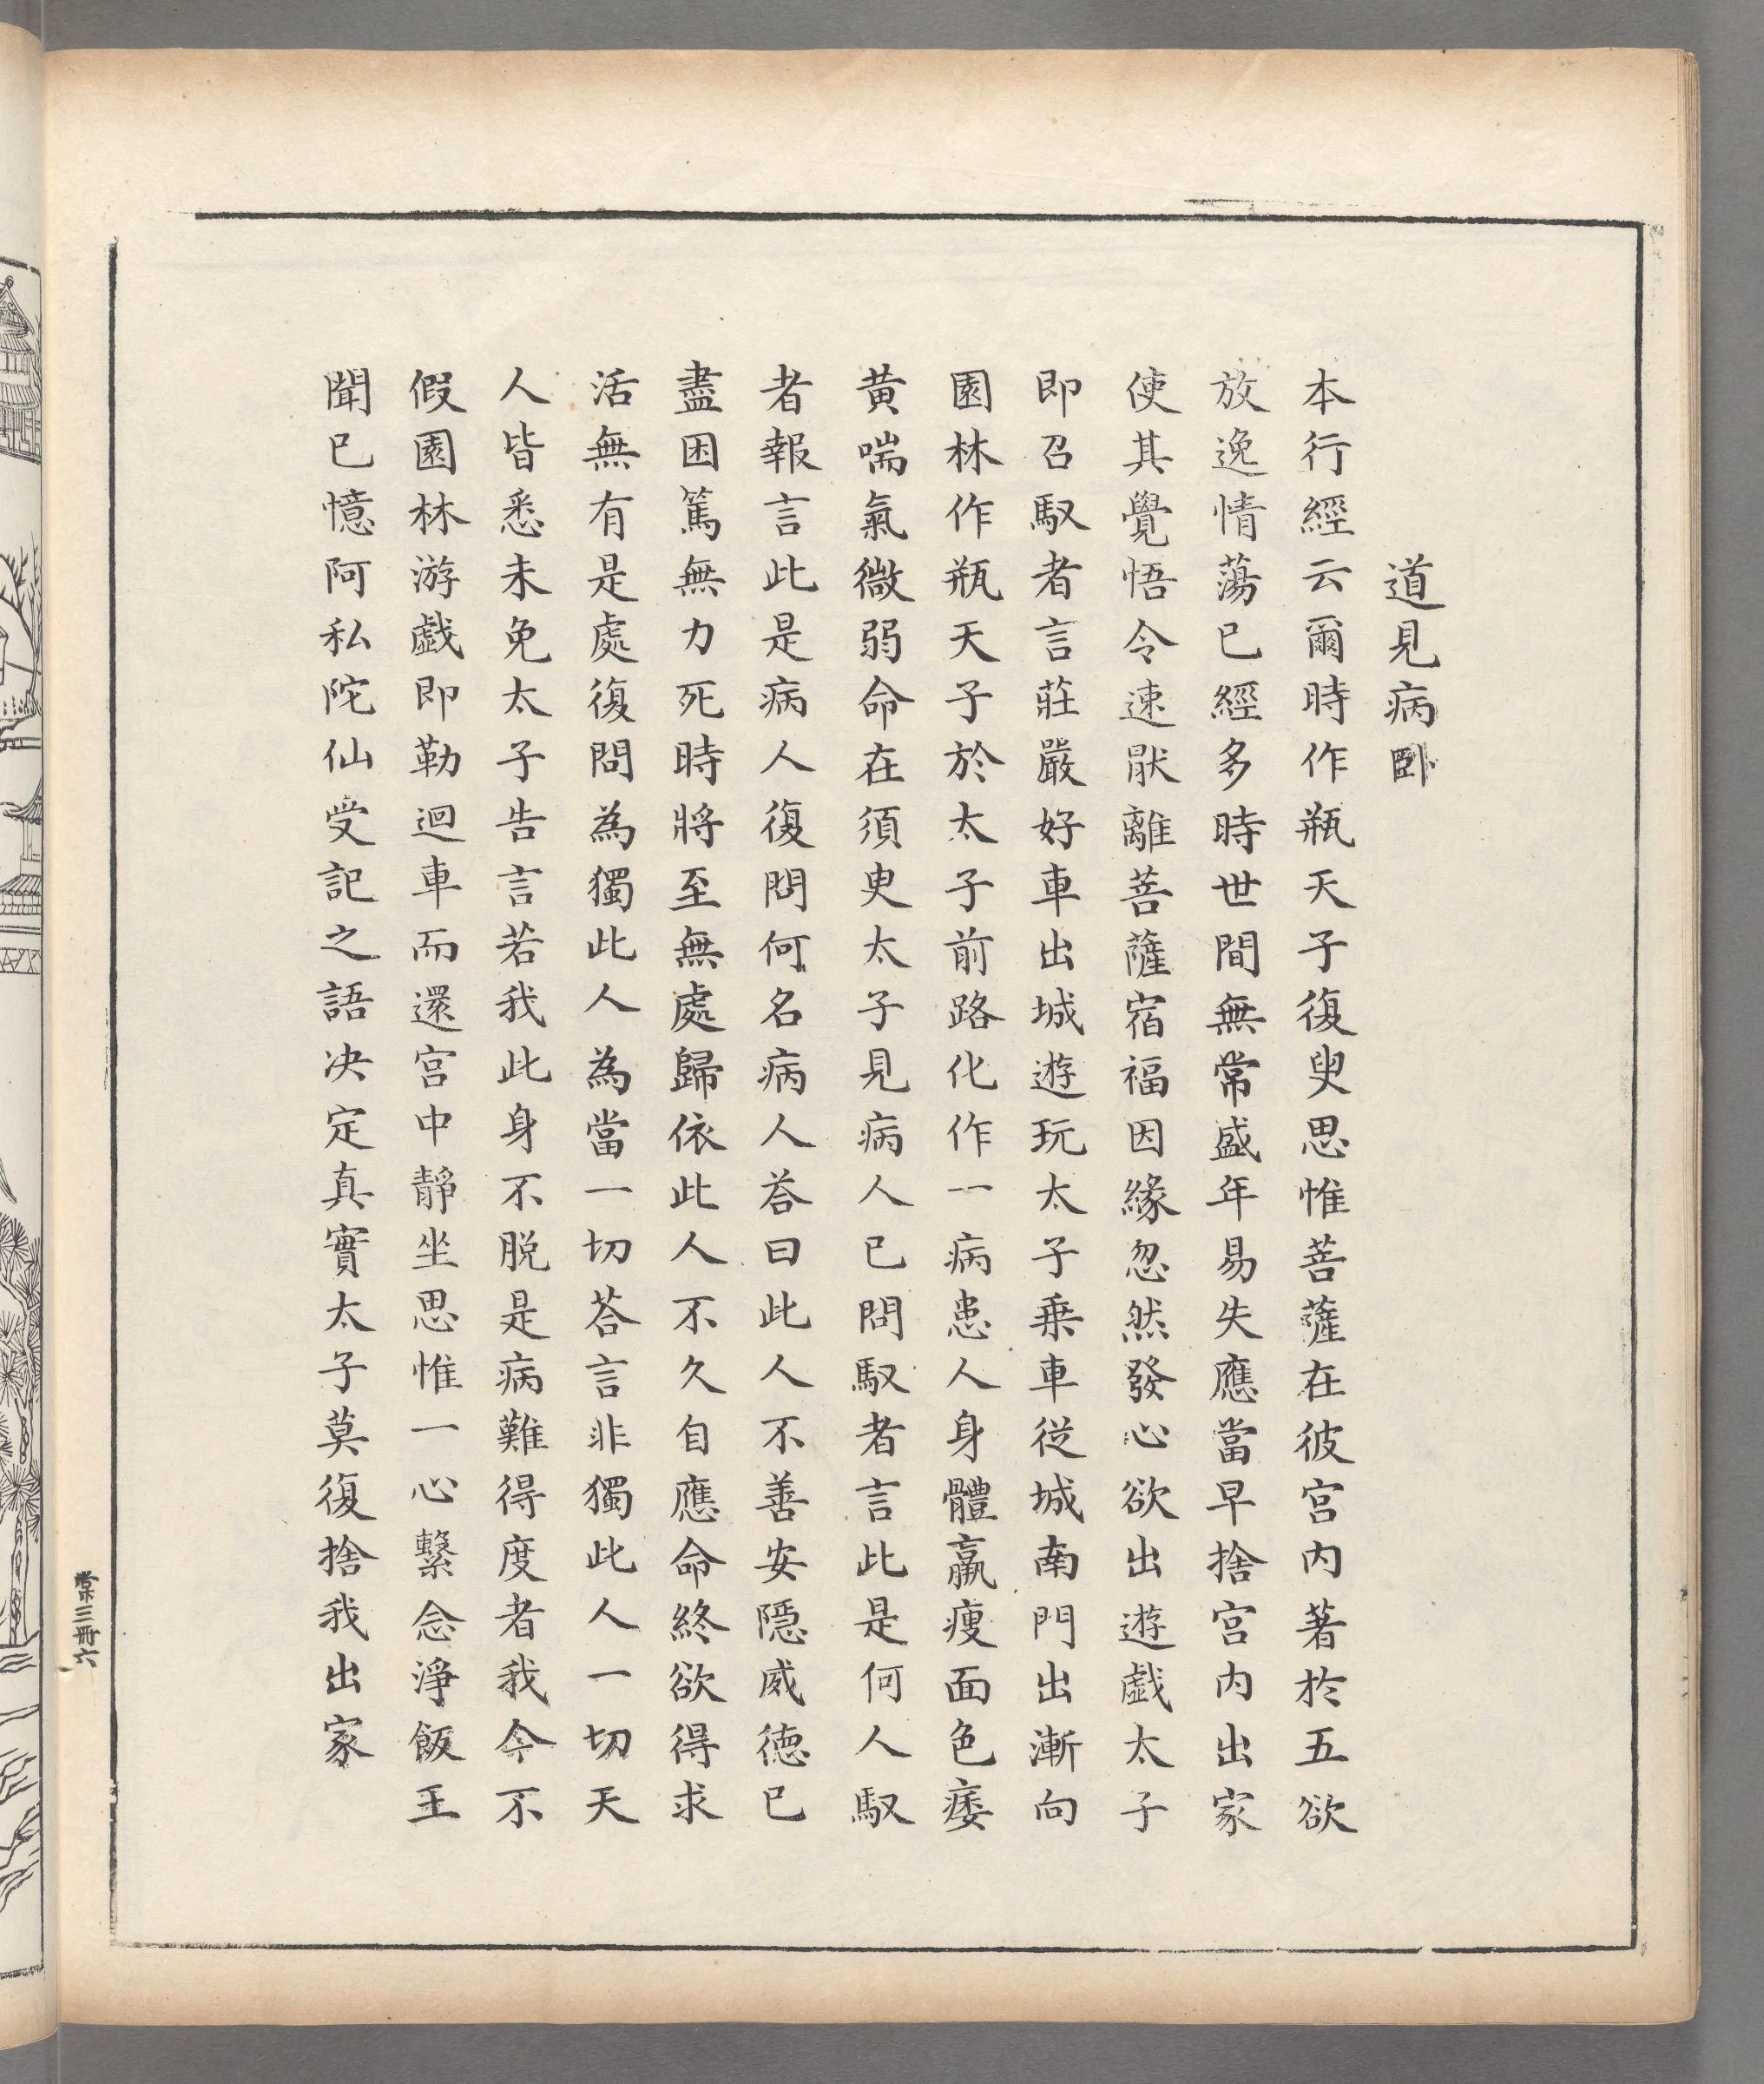 道見病臥
本行經云爾時作瓶天子復叟思惟菩薩在彼宮内著於五欲
放逸情蕩已經多時世間無常盛年易失應當早捨宮内出家
使其覺悟令速猒離菩薩宿福因緣忽然發心欲出遊戲太子
即召馭者言莊嚴好車出城遊玩太子乗車從城南門出漸向
園林作瓶天子於太子前路化作一病患人身體羸瘦面色痿
黄喘氣微弱命在須臾太子見病人已問馭者言此是何人馭
者報言此是病人復問何名病人答曰此人不善安隱威徳已
盡困篤無力死時將至無處歸依此人不久自應命終欲得求
活無有是處復問為獨此人為當一切荅言非獨此人一切天
人皆悉未免太子告言若我此身不脱是病難得度者我今不
假園林游戲即勒迴車而還宮中靜坐思惟一心繫念淨飯王
聞已憶阿私陀仙受記之語决定真實太子莫復捨我出家
常三冊六